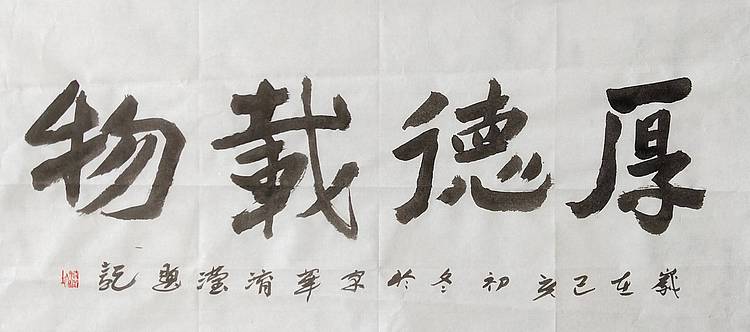 厚德載物
歲在己亥初冬於京華清瀅題記